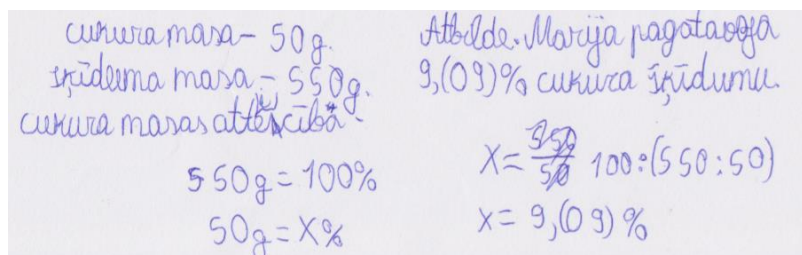 cukura masa - 50 g.
šķīduma masa - 550g.
cukura masas attiecībā -
550g = 100%
50g = X%
Atbilde. Marija pagatavoja
9,(09)% cukura šķīdumu.
X = 100:(550:50)
x = 9,(09)%